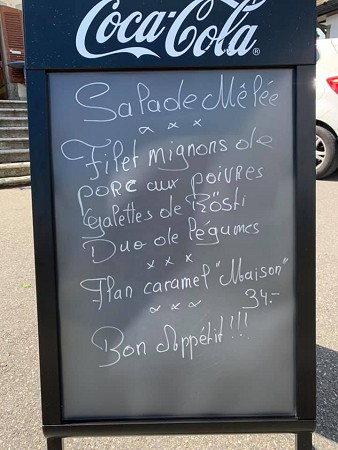 Coca-Cola®
Salade Mêlée
x x x
Filet mignons de
porc aux poivres
Galettes de Rösti
Duo de légumes
x x x
Flan caramel "Maison"
x x x 34.-
Bon Appétit!!!